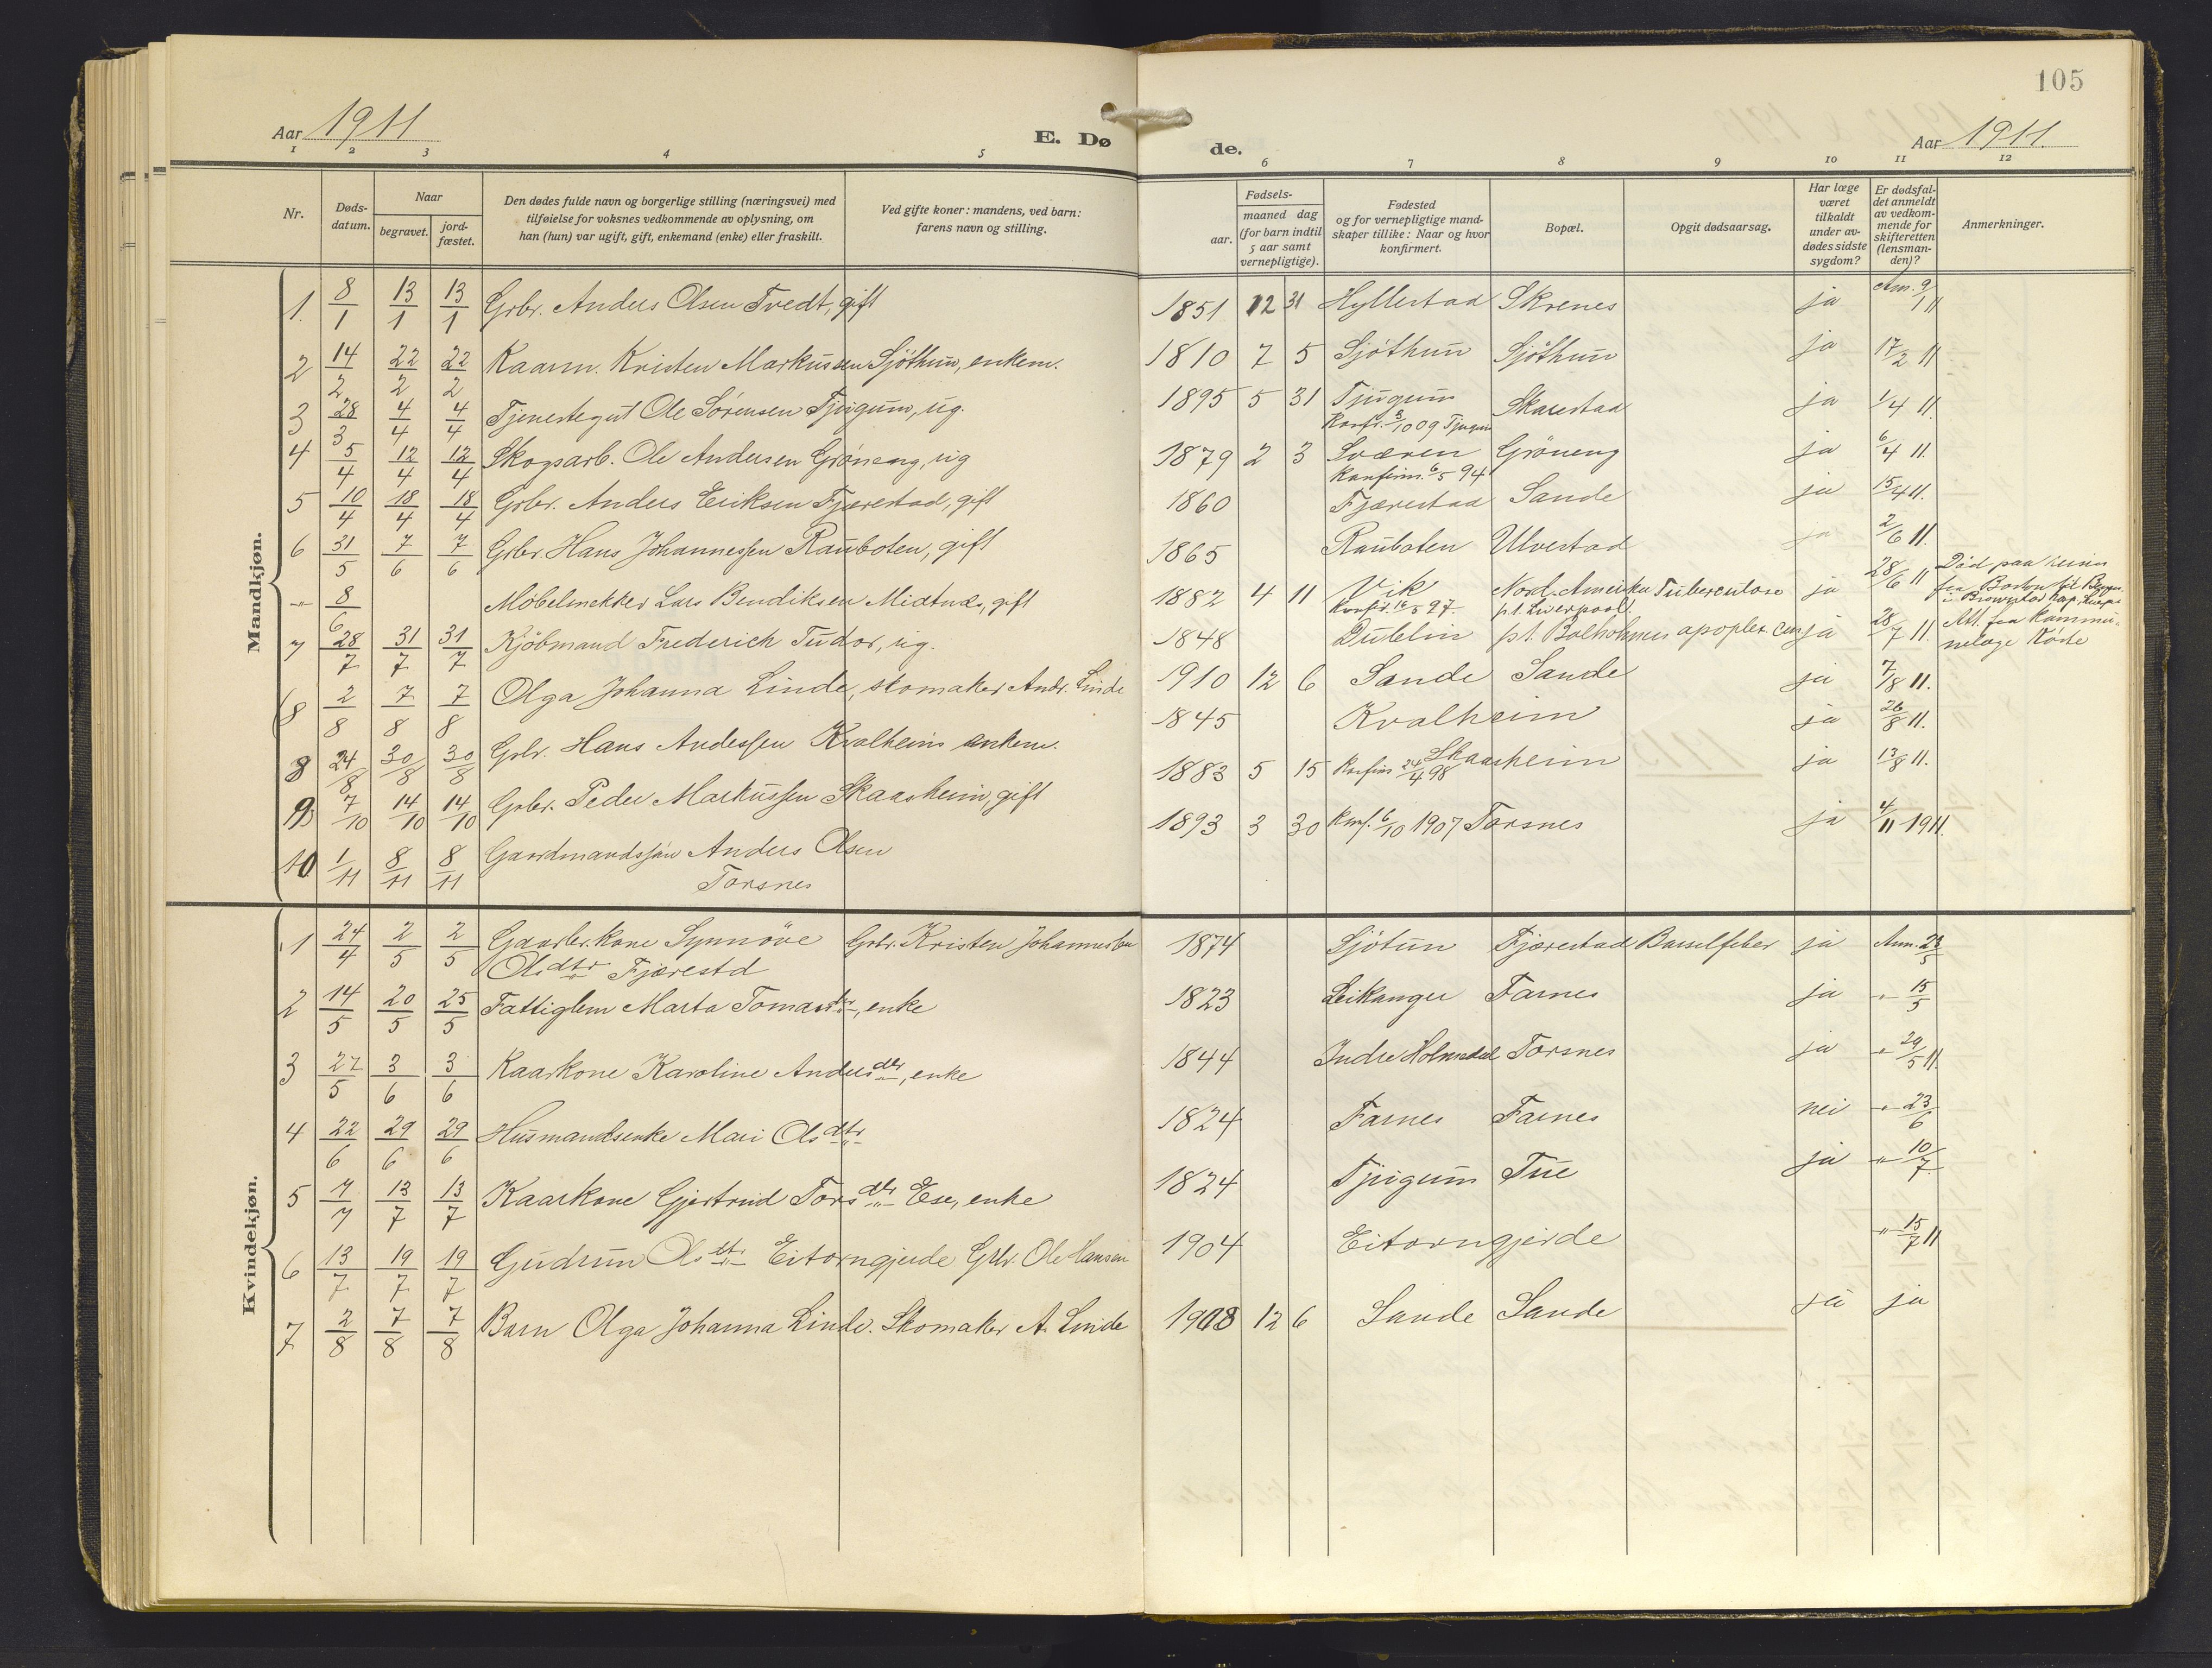 105
Aar 1911
E. Dø
de.
Aar 1911.
1 2 3 4 5 6 7 8 9 10 11 12
Nr.
Døds-
datum.
Naar
begravet.
jord-
fæstet.
Den dødes fulde navn og borgerlige stilling (næringsvei) med
tilføielse for voksnes vedkommende av oplysning, om
han (hun) var ugift, gift, enkemand (enke) eller fraskilt.
Ved gifte koner: mandens, ved barn:
farens navn og stilling.
Fødsels-
aar.
maaned dag
(for barn indtil
5 aar samt
vernepligtige).
Fødested
og for vernepligtige mand-
skaper tillike: Naar og hvor
konfirmert.
Bopæl.
Opgit dødsaarsag.
Har læge
været
tilkaldt
under av-
dødes sidste
sygdom?
Er dødsfal-
det anmeldt
av vedkom-
mende for
skifteretten
(lensman-
den)?
Anmerkninger.
Mandkjøn.
1. 8/1 13/1 13/1 Grbr. Anders Olsen Tvedt, gift 1851 12 31 Hyllestad Skrenes ja Am. 9/1 11
2 14/2 22/2 22/2 Kaarm. Kristen Markussen Sjöthun, enkem. 1810 7 5 Sjöthun Sjöthun ja 17/2 11
3 28/3 4/4 4/4 Tjenestegut Ole Sörensen Tjugum, ug. 1895 5 31 Tjugum Skarestad ja 1/4 11.
Konfr. 3/10 09 Tjugum
4 5/4 12/4 12/4 Skogsarb. Ole Andersen Gröneng, ug 1879 2 3 Sværen Gröneng ja 6/4 11.
Konfirm. 6/5 94
5 10/4 18/4 18/4 Grbr. Anders Eriksen Fjærestad, gift 1860 Fjærestad Sande ja 15/4 11.
6 31/5 7/6 7/6 Grbr. Hans Johannessen Rauboten, gift 1865 Rauboten Ulvestad ja 2/6 11.
-"- 8/6 Möbelsnekker Lars Bendiksen Midtnæs, gift 1882 4 11 Vik Nord. Amerika Tuberculose ja 28/6 11 Död paa reisen
Konfir. 16/5 97 p.t. Liverpool. fra Boston til Bergen
7 28/7 31/7 31/7 Kjöbmand Frederich Tudor, ug. 1848 Dublin p.t. Balholmen apoplex. cer. ja 28/7 11. Att. fra Kommu-
nelæge Köste
8 2/8 7/8 7/8 Olga Johanna Linde, skomaker Andr. Linde 1910 12 6 Sande Sande ja 7/8 11.
8 24/8 30/8 30/8 Grbr. Hans Anderssen Kvalheim enkem. 1845 Kvalheim ja 26/8 11.
9 7/10 14/10 14/10 Grbr. Peder Markussen Skaasheim, gift 1883 5 15 Konfirm 24/4 98 Skaasheim ja 13/8 11.
10 1/11 8/11 8/11 Gaardmandssön Anders Olsen 1893 3 30 Konf. 6/10 1907 Torsnes ja 4/11 1911.
Torsnes
Kvindekjøn.
1 24/4 2/5 2/5 Gaardbr.kone Synnöve Grbr. Kristen Johannessen 1874 Sjötun Fjærestad Barselfeber ja Anm. 23/5
Olsdtr Fjærestd
2 14/5 20/5 25/5 Fattiglem Marta Tomasdtr, enke 1823 Leikanger Farnes ja -"- 15/5
3 27/5 3/6 3/6 Kaarkone Karoline Andersdtr, enke 1844 Indre Holmedal Torsnes ja -"- 29/5 11.
4 22/6 29/6 29/6 Husmandsenke Mari Olsdtr 1824 Farnes Farnes nei -"- 23/6
5 7/7 13/7 13/7 Kaarkone Gjertrud Torsdtr Ese, enke 1824 Tjugum Tue ja -"- 10/7
6 13/7 19/7 19/7 Gudrun Olsdtr Eitorngjerde Grbr. Ole Hansen 1904 Eitorngjerde -"- 15/7 11
7 2/8 7/8 7/8 Barn Olga Johanna Linde. Skomaker A. Linde 1908 12 6 Sande Sande ja ja